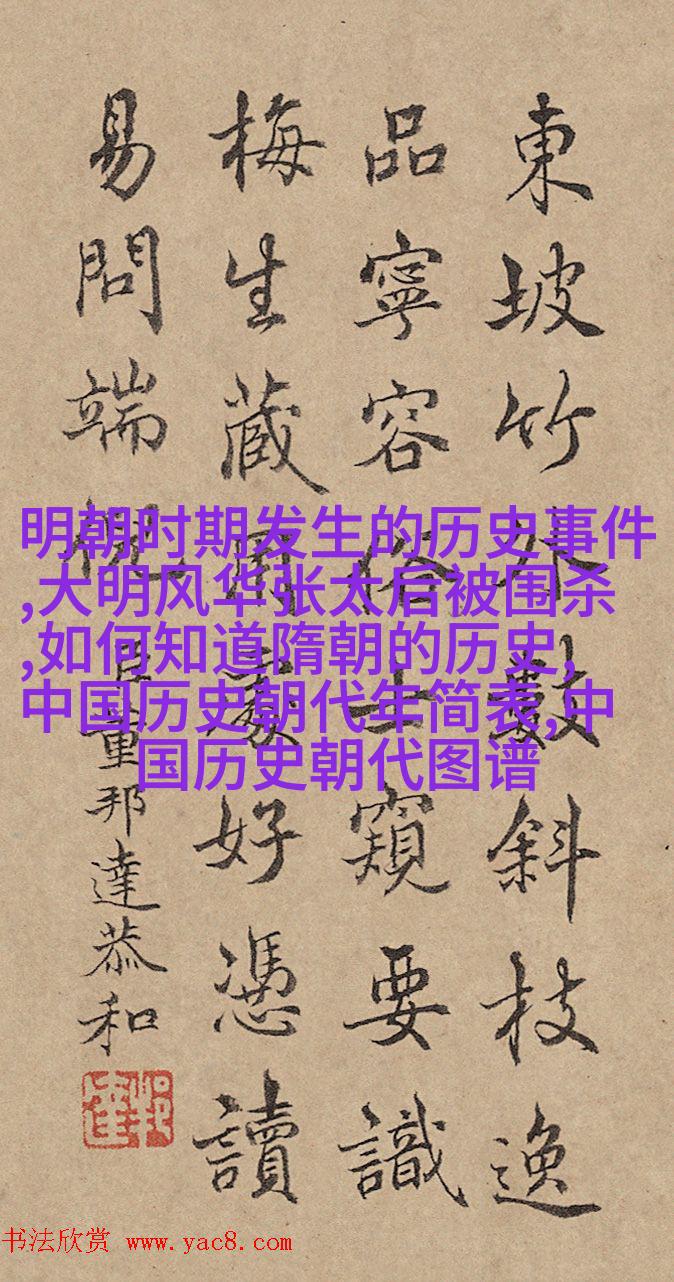 東坡竹外數斜枝逸
品寧容俗士窺要識
梅生蔵處好憑讀
易問端倪
臣董邦達恭和
明朝时期发生的历史事件
,大明风华张太后被围杀
,如何知道隋朝的历史,
中国历史朝代年简表,中
国历史朝代图谱
书法欣赏 www.yac8.com